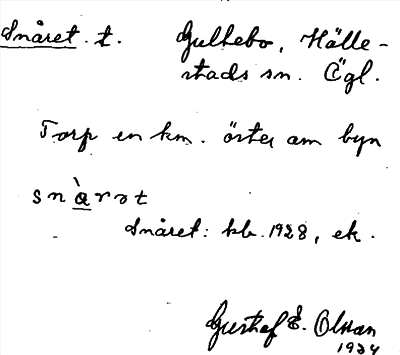 Snåret. t. Gullebo, Hälle-
stads sn. Ögl.
Torp en km. öster om byn
snàrət
Snåret: kb. 1928, ek.
Gustaf E. Olsson
1934